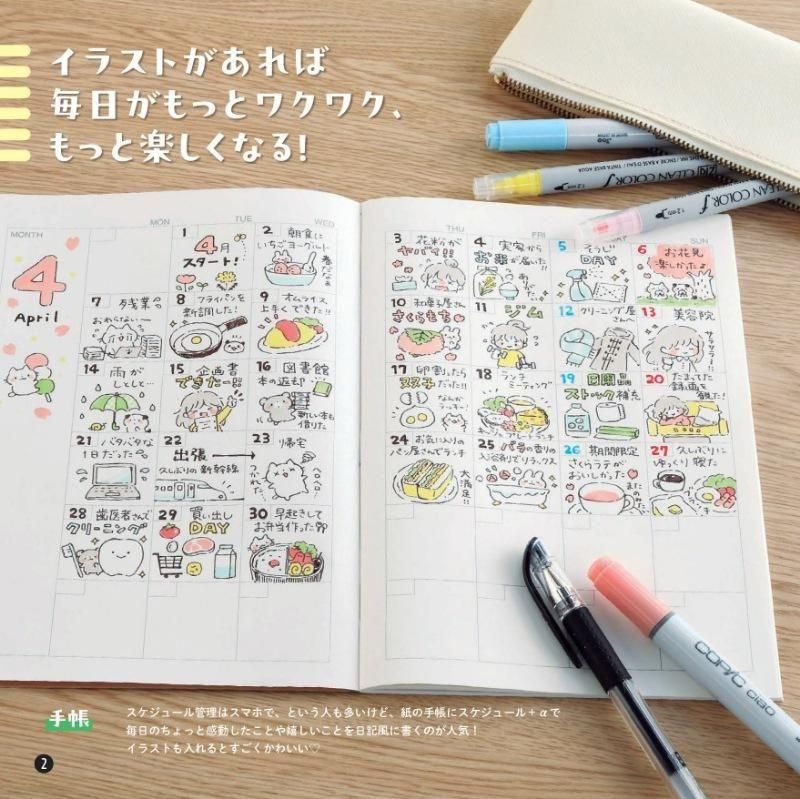 イラストがあれば
毎日がもっとワクワク、
もっと楽しくなる!
MONTH
MON
TUE
WED
THU
FRI
SUN
4
April
1
4月
スタート!
2
朝食に
いちごヨーグルト
3
花粉が
ヤバイ!!
4
実家から
お茶が届いた!!
5
そうじ
DAY
6
お花見
楽しかったよ
7
残業で
おわらない
8
フライパンを
新調した!
9
オムライス
上手くできた!!
10
和菓子屋さん
さくらもち
11
ジム
12
クリーニング屋
さんへ
13
美容院
サラサラー!!
14
雨が
しとしと…
15
企画書
できたー!!
16
図書館
本の返却
新しい本も
借りた
17
卵割ったら
双子だった!!
なんか
ラッキー!
18
ランチ
ミーティング
プレートランチ
19
日用品
ストック補充
20
たまってた
録画を
観た!
21
バタバタな
1日だった
22
出張
久しぶりの新幹線
23
帰宅
つかれた
ヘロヘロ
24
お気に入りの
パン屋さんでランチ
大満足!!
25
バラの香りの
入浴剤でリラックス
26
期間限定
さくらラテが
おいしかった
またのみたい
27
久しぶりに
ゆっくり寝た
28
歯医者さんで
クリーニング
29
買い出し
DAY
30
早起きして
お弁当作った
CLEAN COLOR f
CLEAN COLOR f
COPIC ciao
手帳
スケジュール管理はスマホで、という人も多いけど、紙の手帳にスケジュール+αで
毎日のちょっと感動したことや嬉しいことを日記風に書くのが人気!
イラストも入れるとすごくかわいい♡
2